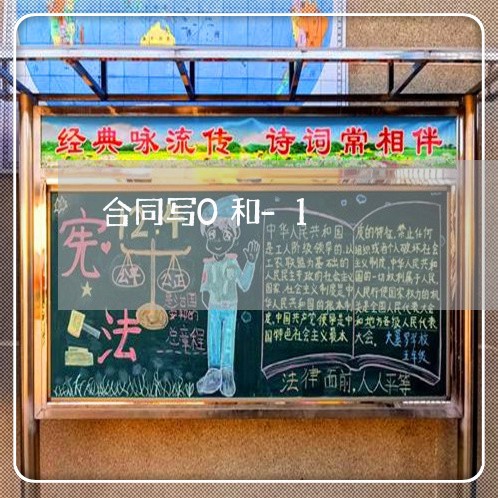 经典咏流传 诗词常相伴
合同写0和-1
宪法
公平 公正
总章程
中华人民共和国
是工人阶级领导的,以
工农联盟为基础的
人民民主专政的社会主义
国家,社会主义制度是中
华人民共和国的根本制
度,中国共产党领导是中
国特色社会主义最本
质的特征,禁止任何
组织或者个人破坏社会
主义制度,中华人民共和
国的一切权利属于人民
人民行使国家权力的机
关是全国人民代表大会
和地方各级人民代表
大会。
五年级
法律面前,人人平等